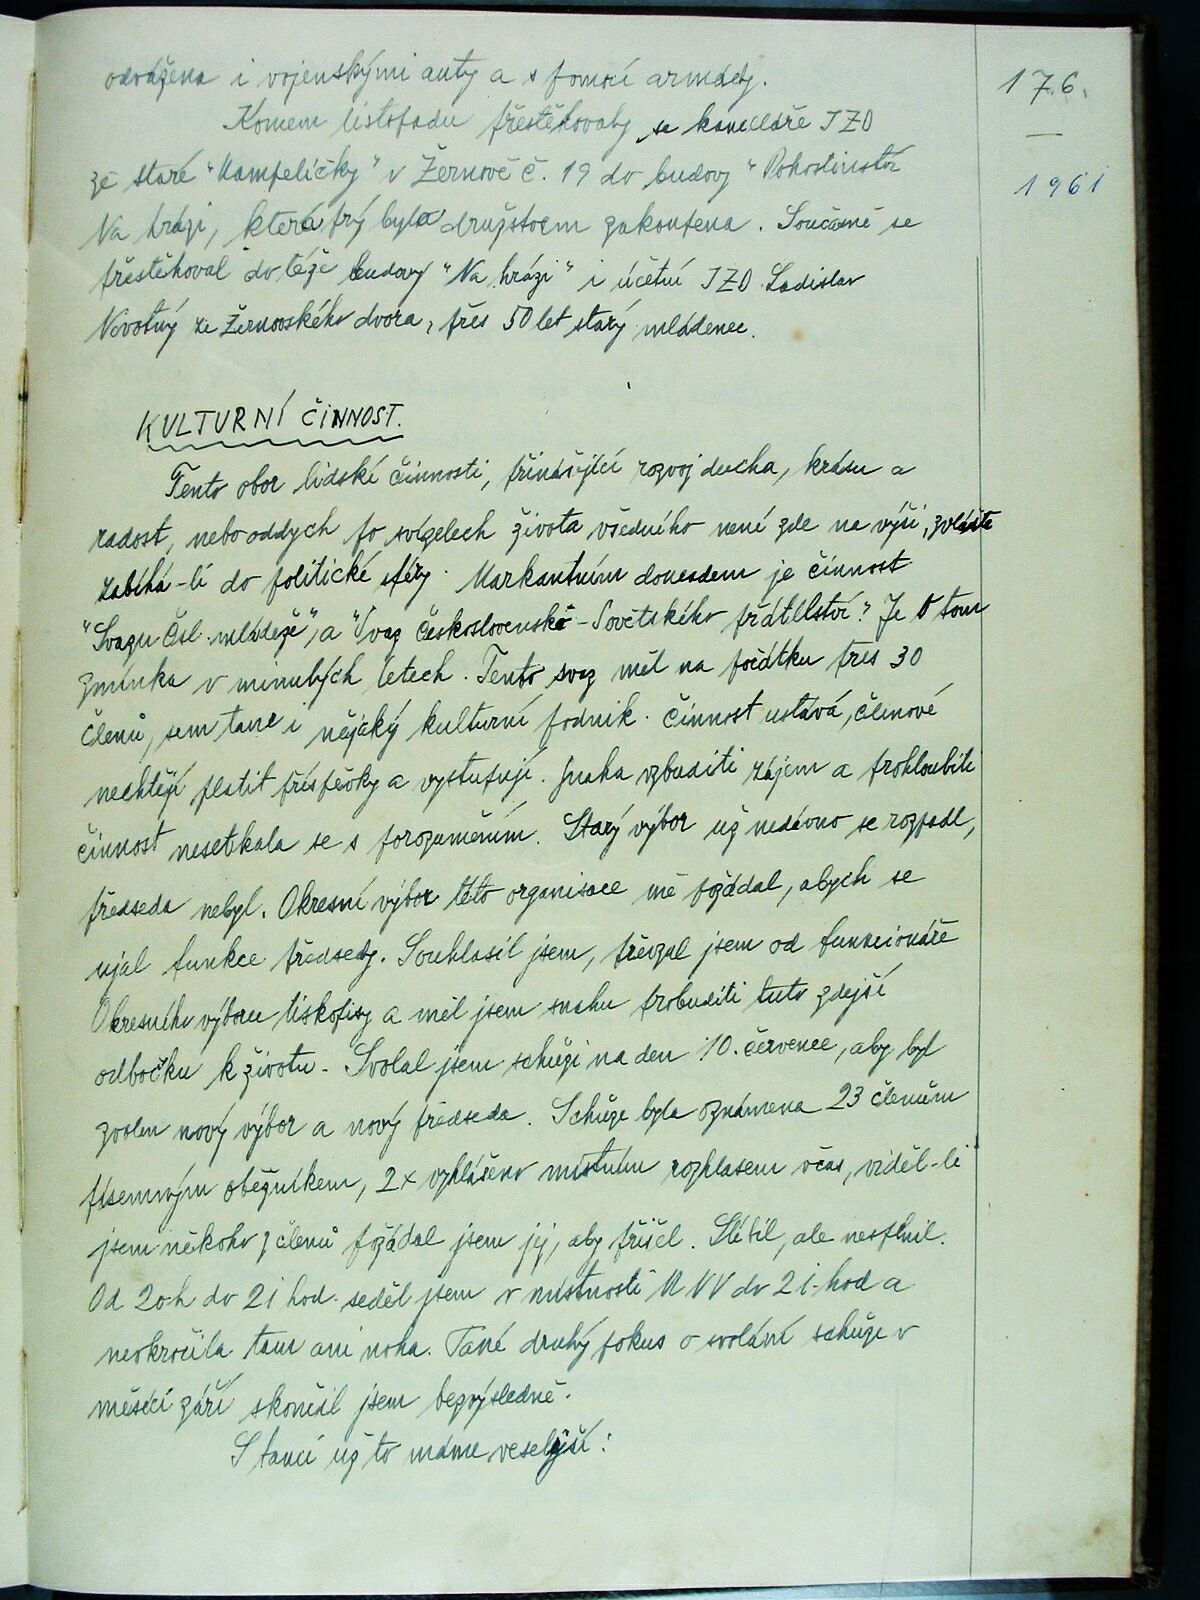 odvážena i vojenskými auty a s pomocí armády.
176.
Koncem listopadu přestěhovaly se kanceláře JZD
ze staré "Kampeličky" v Žernově č. 19 do budovy "Pohostinství
1961
Na hrázi, která prý byla družstvem zakoupena. Současně se
přestěhoval do téže budovy "Na hrázi" i účetní JZD Ladislav
Novotný ze Žernovského dvora, přes 50 let starý mládenec.
KULTURNÍ ČINNOST.
Tento obor lidské činnosti, přinášející rozvoj ducha, krásu a
radost, nebo oddych po svízelech života všedního není zde na výši, zvláště
zabíhá-li do politické sféry. Markantním dokladem je činnost
"Svazu Čsl. mládeže", a "Svaz Československo-Sovětského přátelství." Je o tom
zmínka v minulých letech. Tento svaz měl na počátku přes 30
členů, sem tam i nějaký kulturní podnik. Činnost ustává, členové
nechtějí platit příspěvky a vystupují. Snaha vzbuditi zájem a prohloubiti
činnost nesetkala se s porozuměním. Starý výbor už nedávno se rozpadl,
předseda nebyl. Okresní výbor této organisace mě požádal, abych se
ujal funkce předsedy. Souhlasil jsem, převzal jsem od funkcionáře
Okresního výboru tiskopisy a měl jsem snahu probuditi tuto zdejší
odbočku k životu. Svolal jsem schůzi na den 10. července, aby byl
zvolen nový výbor a nový předseda. Schůze byla oznámena 23 členům
písemným oběžníkem, 2x vyhlášeno místním rozhlasem včas, viděl-li
jsem někoho z členů požádal jsem jej, aby přišel. Slíbil, ale nesplnil.
Od 20h do 21 hod. seděl jsem v místnosti MNV do 21-hod a
nevkročila tam ani noha. Také druhý pokus o svolání schůze v
měsíci září skončil jsem bezvýsledně.
S tancí už to máme veselejší: